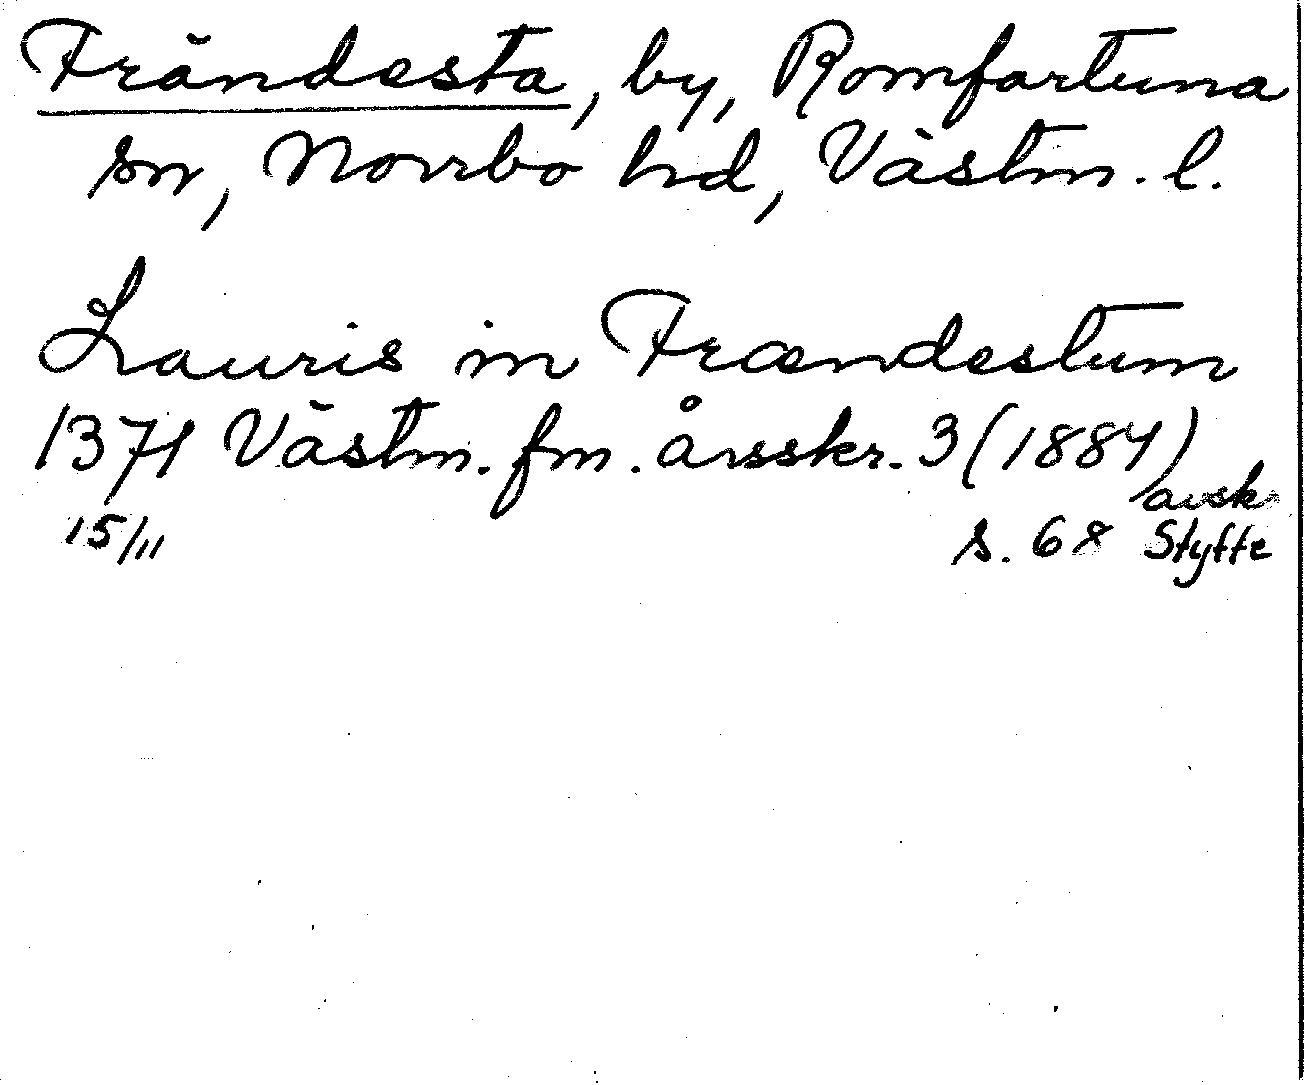 Frändesta, by, Romfartuna
sn, Norrbo hd, Västm. l.
Lauris in Frændestum
1371 Västm. fm. årsskr. 3 (1884)
15/11 s. 68 avsk
Styffe